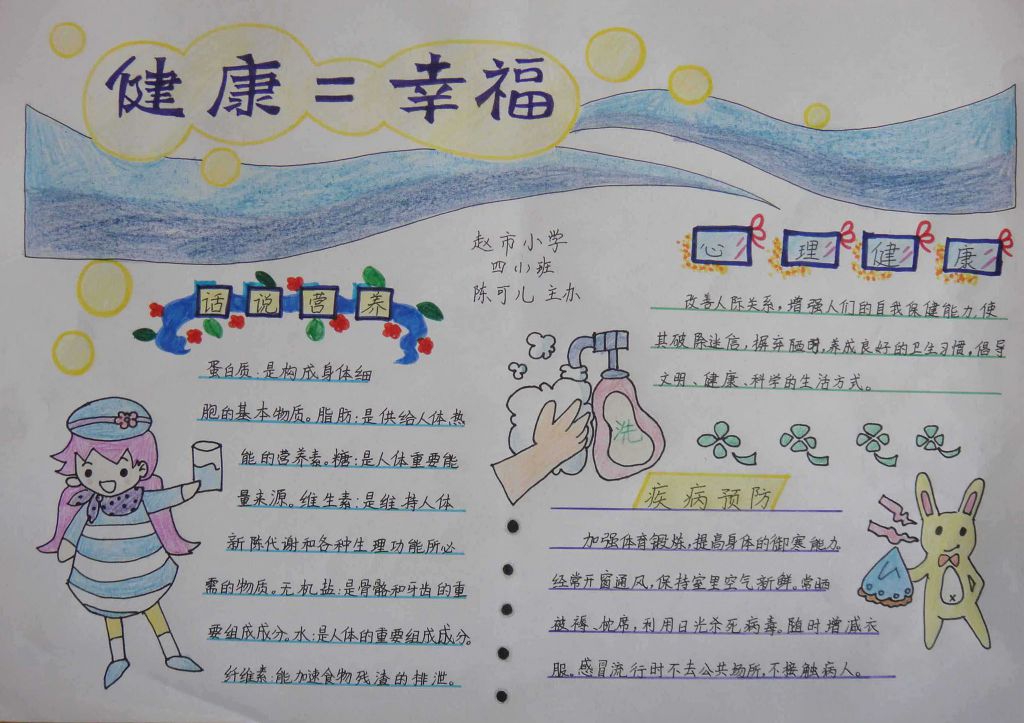 健康=幸福
赵市小学
四(1)班
陈可儿 主办
话说营养
蛋白质:是构成身体细
胞的基本物质。脂肪:是供给人体热
能的营养素。糖:是人体重要能
量来源。维生素:是维持人体
新陈代谢和各种生理功能所必
需的物质。无机盐:是骨骼和牙齿的重
要组成成分。水:是人体的重要组成成分。
纤维素:能加速食物残渣的排泄。
心理健康
改善人际关系,增强人们的自我保健能力,使
其破除迷信,摒弃陋习,养成良好的卫生习惯,倡导
文明、健康、科学的生活方式。
洗
疾病预防
加强体育锻炼,提高身体的御寒能力。
经常开窗通风,保持室里空气新鲜。常晒
被褥、枕席,利用日光杀死病毒。随时增减衣
服。感冒流行时不去公共场所,不接触病人。